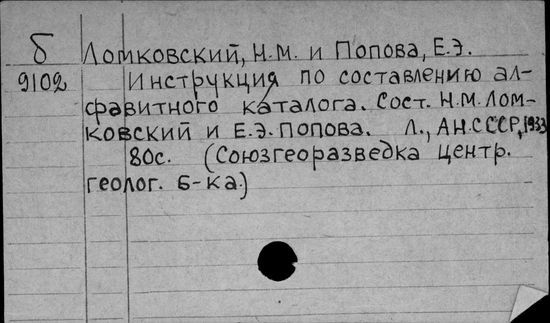 б Ломковский, Н.М. и Попова, Е.Э.
9102 Инструкция по составлению ал-
фавитного каталога. Сост. Н.М. Лом-
ковский и Е.Э. Попова. Л., АН СССР, 1933
80с. (Союзгеоразведка центр.
геолог. б-ка.)